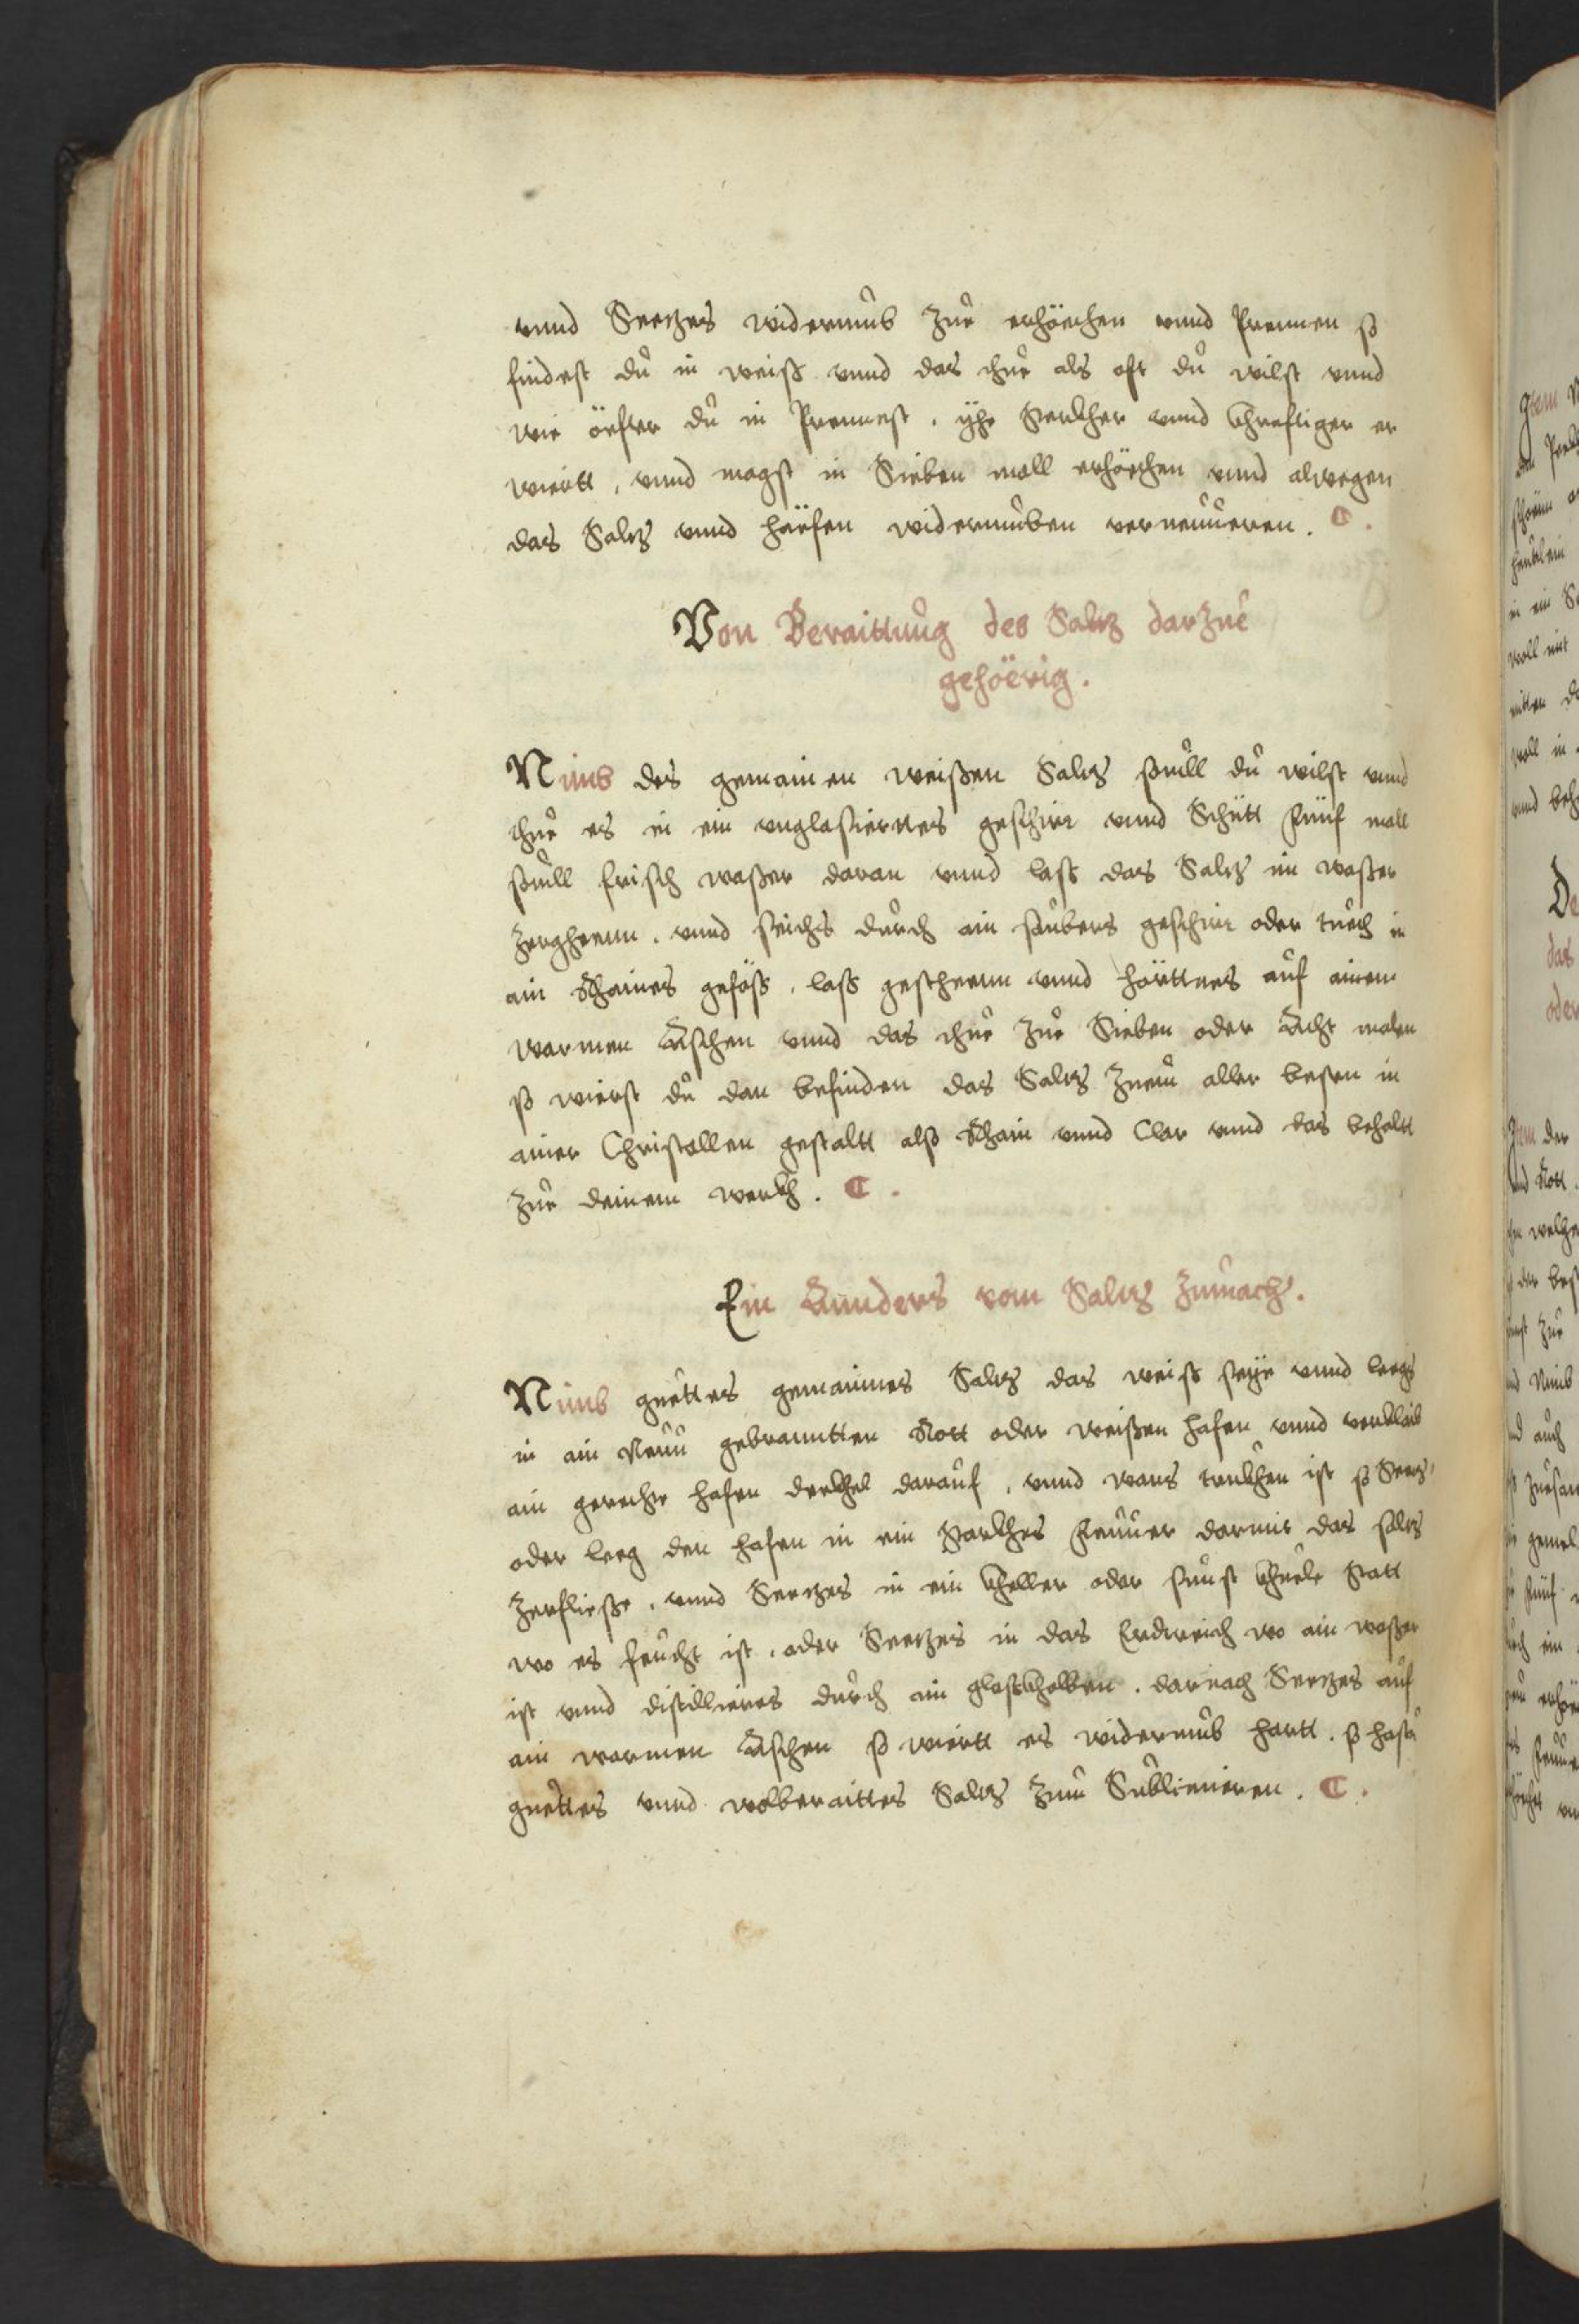 vnnd Seetzes widerumb Zue erhöechen vnnd Prennen so
findest du in weiß vnnd das thue als oft du wilst vnnd
wie öefter du in Prennest . yhe sterckher vnnd khreftiger er
wiertt , vnnd magst in Sieben mall erhöechen vnnd alwegen
das Saltz vnnd häefen widerumben verneuueren . C .
Von Beraittung des Saltz darZue
gehöerig .
Nimb des gemainen weißen Saltz souill du wilst vnnd
thue es in ein vnglasierttes geschirr vnnd Schitt Fünf mall
souill frisch waßer daran vnnd lasß das Saltz im waßer
Zergheenn . vnnd seichs durch ain saubers geschirr oder tuech in
ain Rhaines gefösß . lasß gestheenn vnnd hörttnes auf ainem
warmen Äschen vnnd das thue Zue Sieben oder Acht malen
so wierst du dan befinden das Saltz Zuem aller besten in
ainer Christallen gestaltt alß Rhain vnnd Clar vnnd das behaltt
Zue deinem werckh . C .
Ein Annders vom Saltz Zumach .
Nimb guettes gemaines Saltz das weisß seye vnnd leegs
in ain Neuu gebranntten Rott oder weißen hafen vnnd verklaib
ain gerechte hafen deckhel darauf , vnnd wans truckhen ist so Seetz
oder leeg den hafen in ein starckhes Feuuer darmit das saltz
Zerfließe . vnnd Seetzes in ein kheller oder sunst khuele statt
wo es feucht ist . oder Seetzes in das Erdtreich wo ain waßer
ist vnnd distillieres durch ain glaskholben . darnach Seetzes auf
ain warmen Äschen so wiertt es widerumb hartt . so hastu
guettes vnnd wolberaittes Saltz Zum Sublimieren . C .